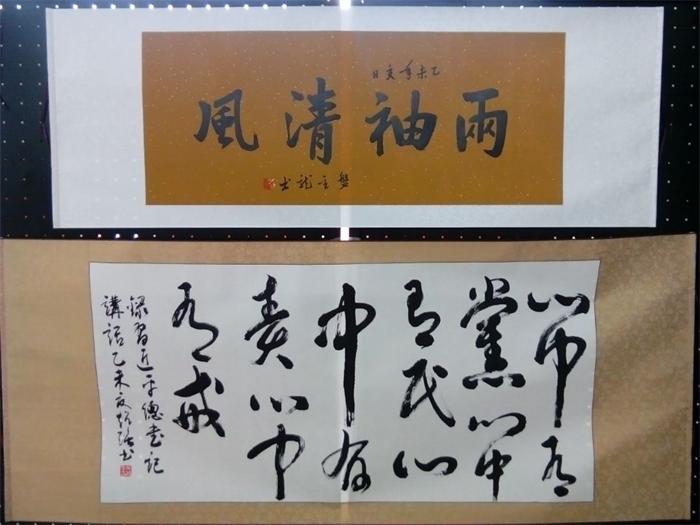 乙未年夏日
兩袖清風
心中有
黨心中
有民心
中有
責心中
有戒
錄習近平總書記
講話乙未夏 書